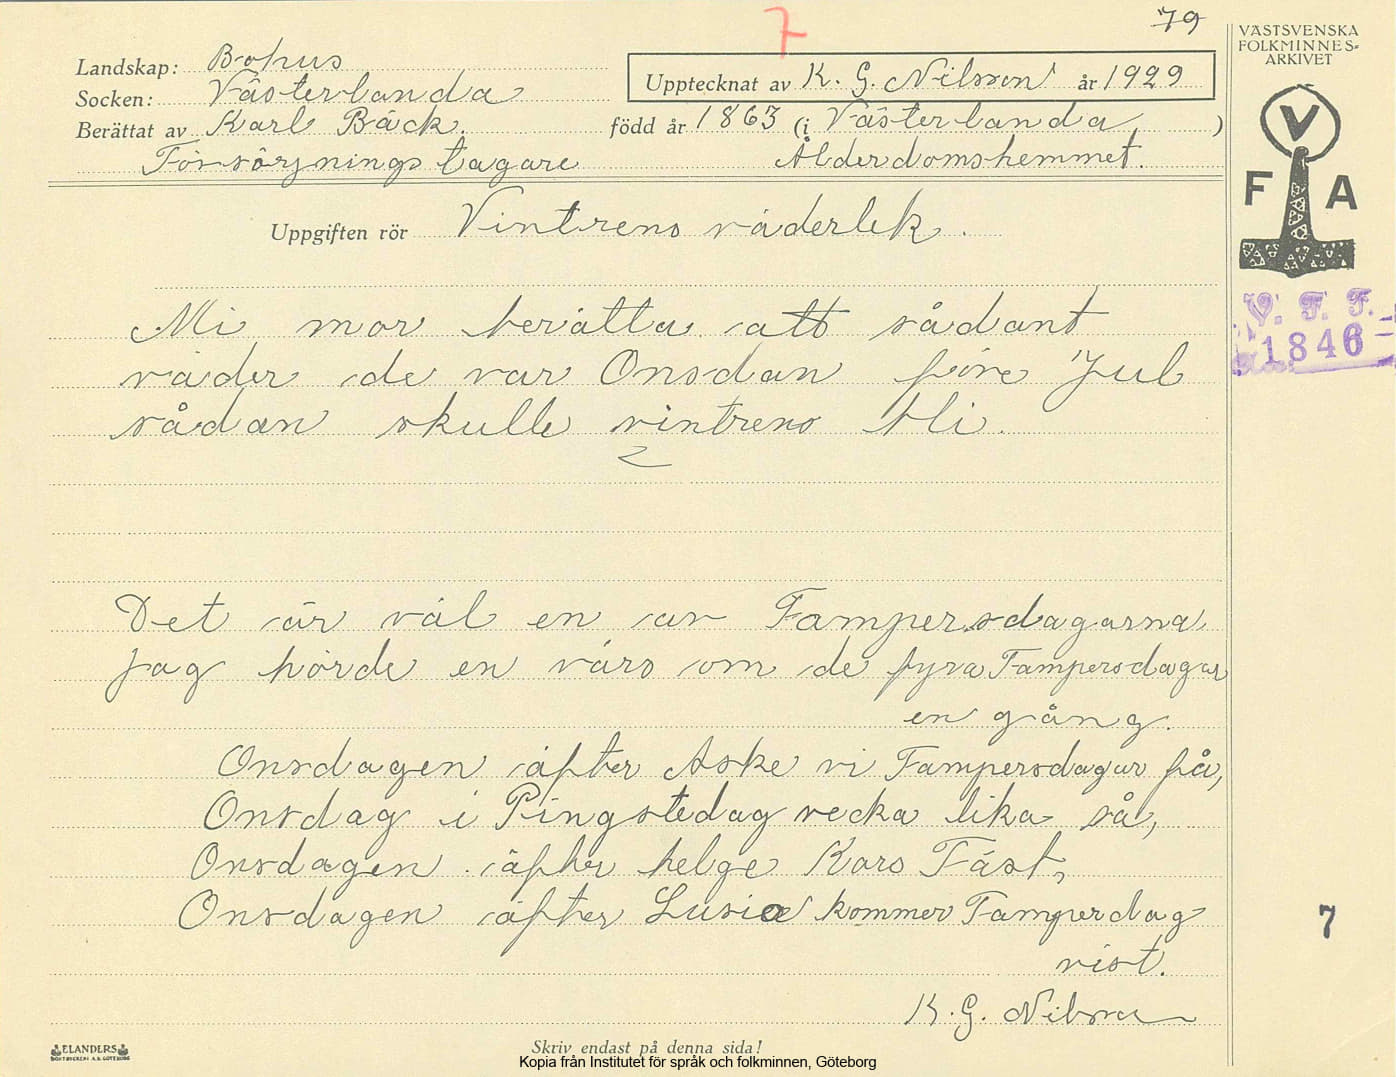 7
79
VÄSTSVENSKA
FOLKMINNES-
ARKIVET
Landskap: Bohus
Socken: Västerlanda
Upptecknat av K. G. Nilsson år 1929
Berättat av Karl Bäck. född år 1863 (i Västerlanda, )
Försörjningstagare Ålderdomshemmet.
V
F A
Uppgiften rör Vintrens väderlek.
V. F. F.
1846
Mi mor berätta att sådant
väder de var Onsdan före Jul
sådan skulle vintrens bli.
Det är väl en av Tampersdagarna
jag hörde en värs om de fyra Tampersdagar
en gång.
Onsdagen äfter Aske vi Tampersdagar få,
Onsdag i Pingstedag vecka lika så,
Onsdagen äfter helge Kors Fäst,
Onsdagen äfter Lusia kommer Tamperdag
vist.
7
K. G. Nilsson
ELANDERS
BOKTRYCKERI A.B. GÖTEBORG
Skriv endast på denna sida!
Kopia från Institutet för språk och folkminnen, Göteborg